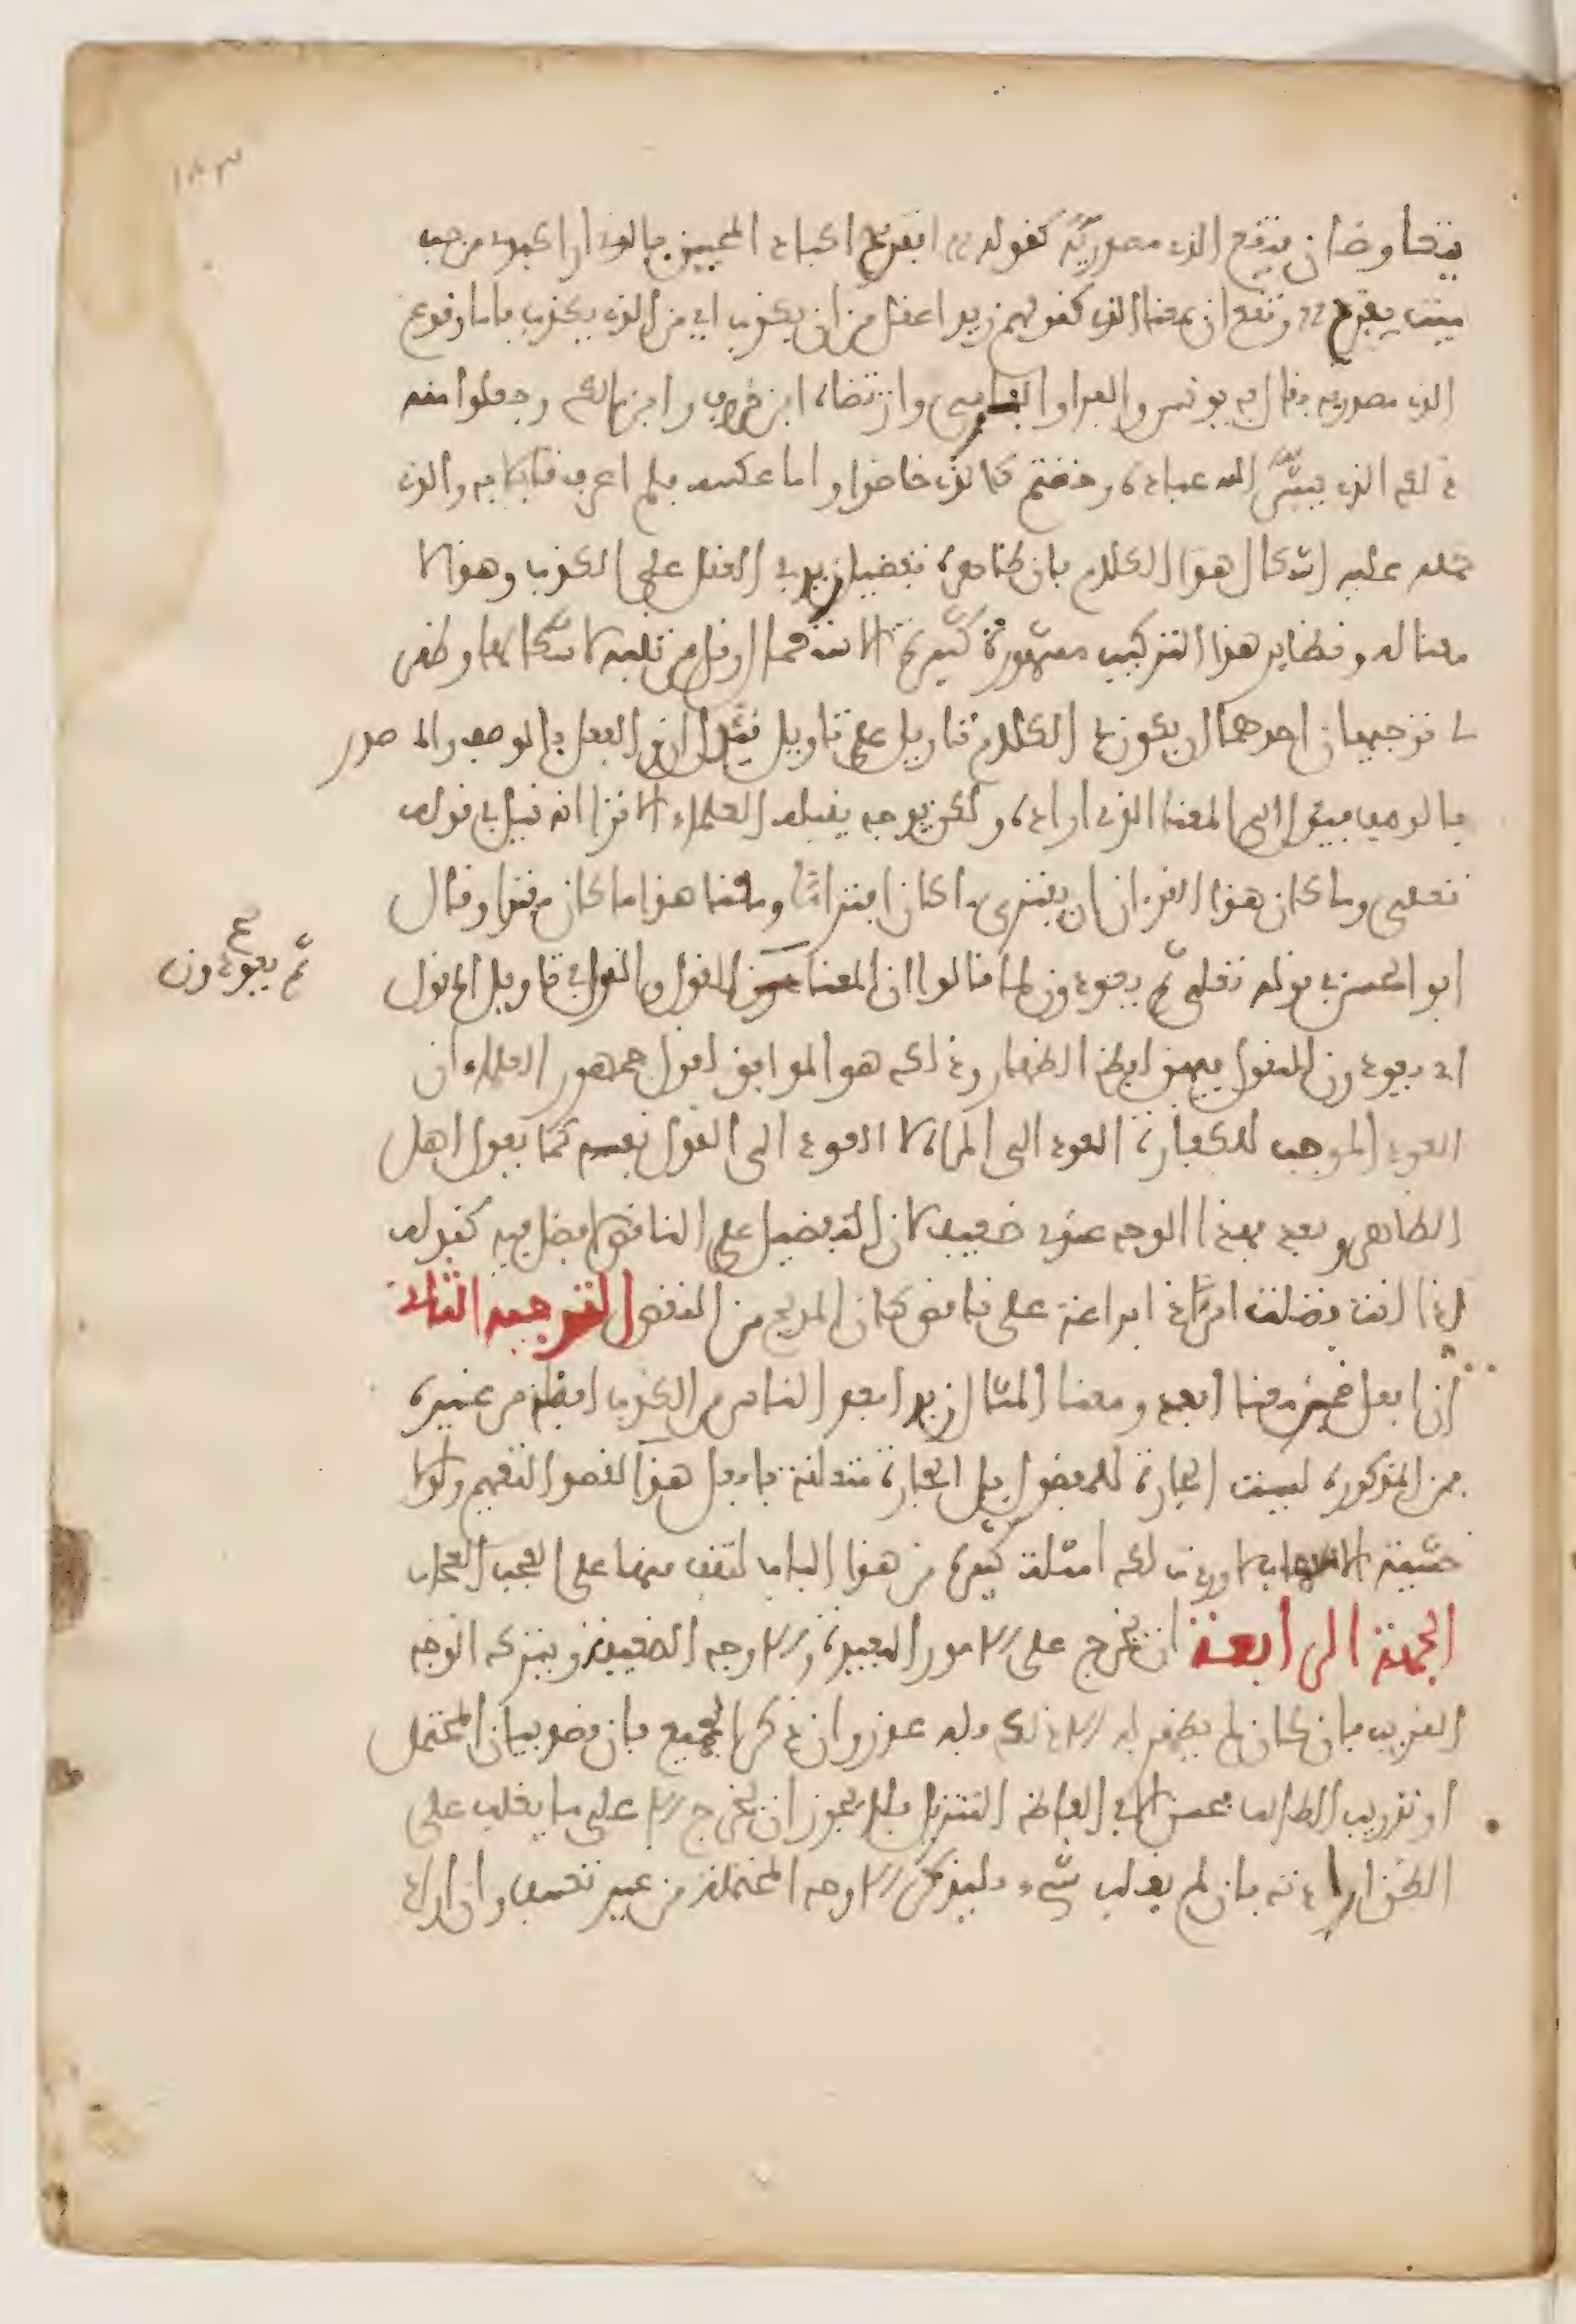 ١٨٣
يتقارضان فتقع الذي مصدرية كقوله أتقرح أكباد المحبين كالذي أرى كبدي من حب
مية يقرح وتقع أن بمعنا الذي كقولهم زيد اعقل من ان يكذب اي من الذي يكذب فاما وقوع
الذي مصدرية فقال به يونس والفرا والفارسي وارتضاه ابن خروف وابن مالك وجعلوا منه
ذلك الذي يبشر الله عباده وخضتم كالذي خاضوا واما عكسه فلم اعرف قايلا به والذي
حمله عليه اشكال هذا الكلام فان ظاهره تفضيل زيد في العقل على الكذب وهذا لا
معنا له ونظاير هذا التركيب مشهورة كثيرة الاستعمال وقل من تنبه لاشكالها وظهر
لي توجيهان احدهما ان يكون في الكلام تاويل على تاويل فيؤل ان والفعل بالمصدر والمصدر
بالوصف فيؤل الى المعنا الذي اراده ولكن بوجه يقبله العلماء الا ترا انه قيل في قوله
تعلى وما كان هذا القرءان ان يفترى ما كان افتراءً ومعنا هذا ما كان مفترا وقال
ابو الحسن في قوله تعلى ثم يعودون لما قالوا ان المعنا للقول والقول في تاويل المقول
ثم يعودون
اي يعودون للمقول فيهن لفظ الظهار وذلك هو الموافق لقول جمهور العلماء ان
العود الموجب للكفارة العود الى المرأة لا العود الى القول نفسه كما يقول اهل
الظاهر وبعد فهذا الوجه عندي ضعيف لان التفضيل على الناقص لا فضل فيه كقوله
اذا انت فضلت امرءا ذا براعة على ناقص كان المديح من النقص التوجيه الثاني
ان افعل ضمن معنا ابعد ومعنا المثال زيد ابعد الناس من الكذب لفضله من غيره
فمن المذكورة ليست الجارة للمفضول بل الجارة متعلقة بافعل هذا القصد التفهيم ولولا
خشية الاسهاب لاوردت لك امثلة كثيرة من هذا الباب لتقف منها على العجب العجاب
الجهة الرابعة ان يخرج على الامور البعيدة والاوجه الضعيفة ويترك الوجه
القريب فان كان لم يظهر له الا ذلك فله عذر وان ذكر الجميع فان قصد بيان المحتمل
او تدريب الطالب فحسن الا في الفاظ التنزيل فلا يجوز ان يخرج الا على ما يغلب على
الظن ارادته فان لم يغلب شيء فليذكر الاوجه المحتملة من غير تعسف وان اراد